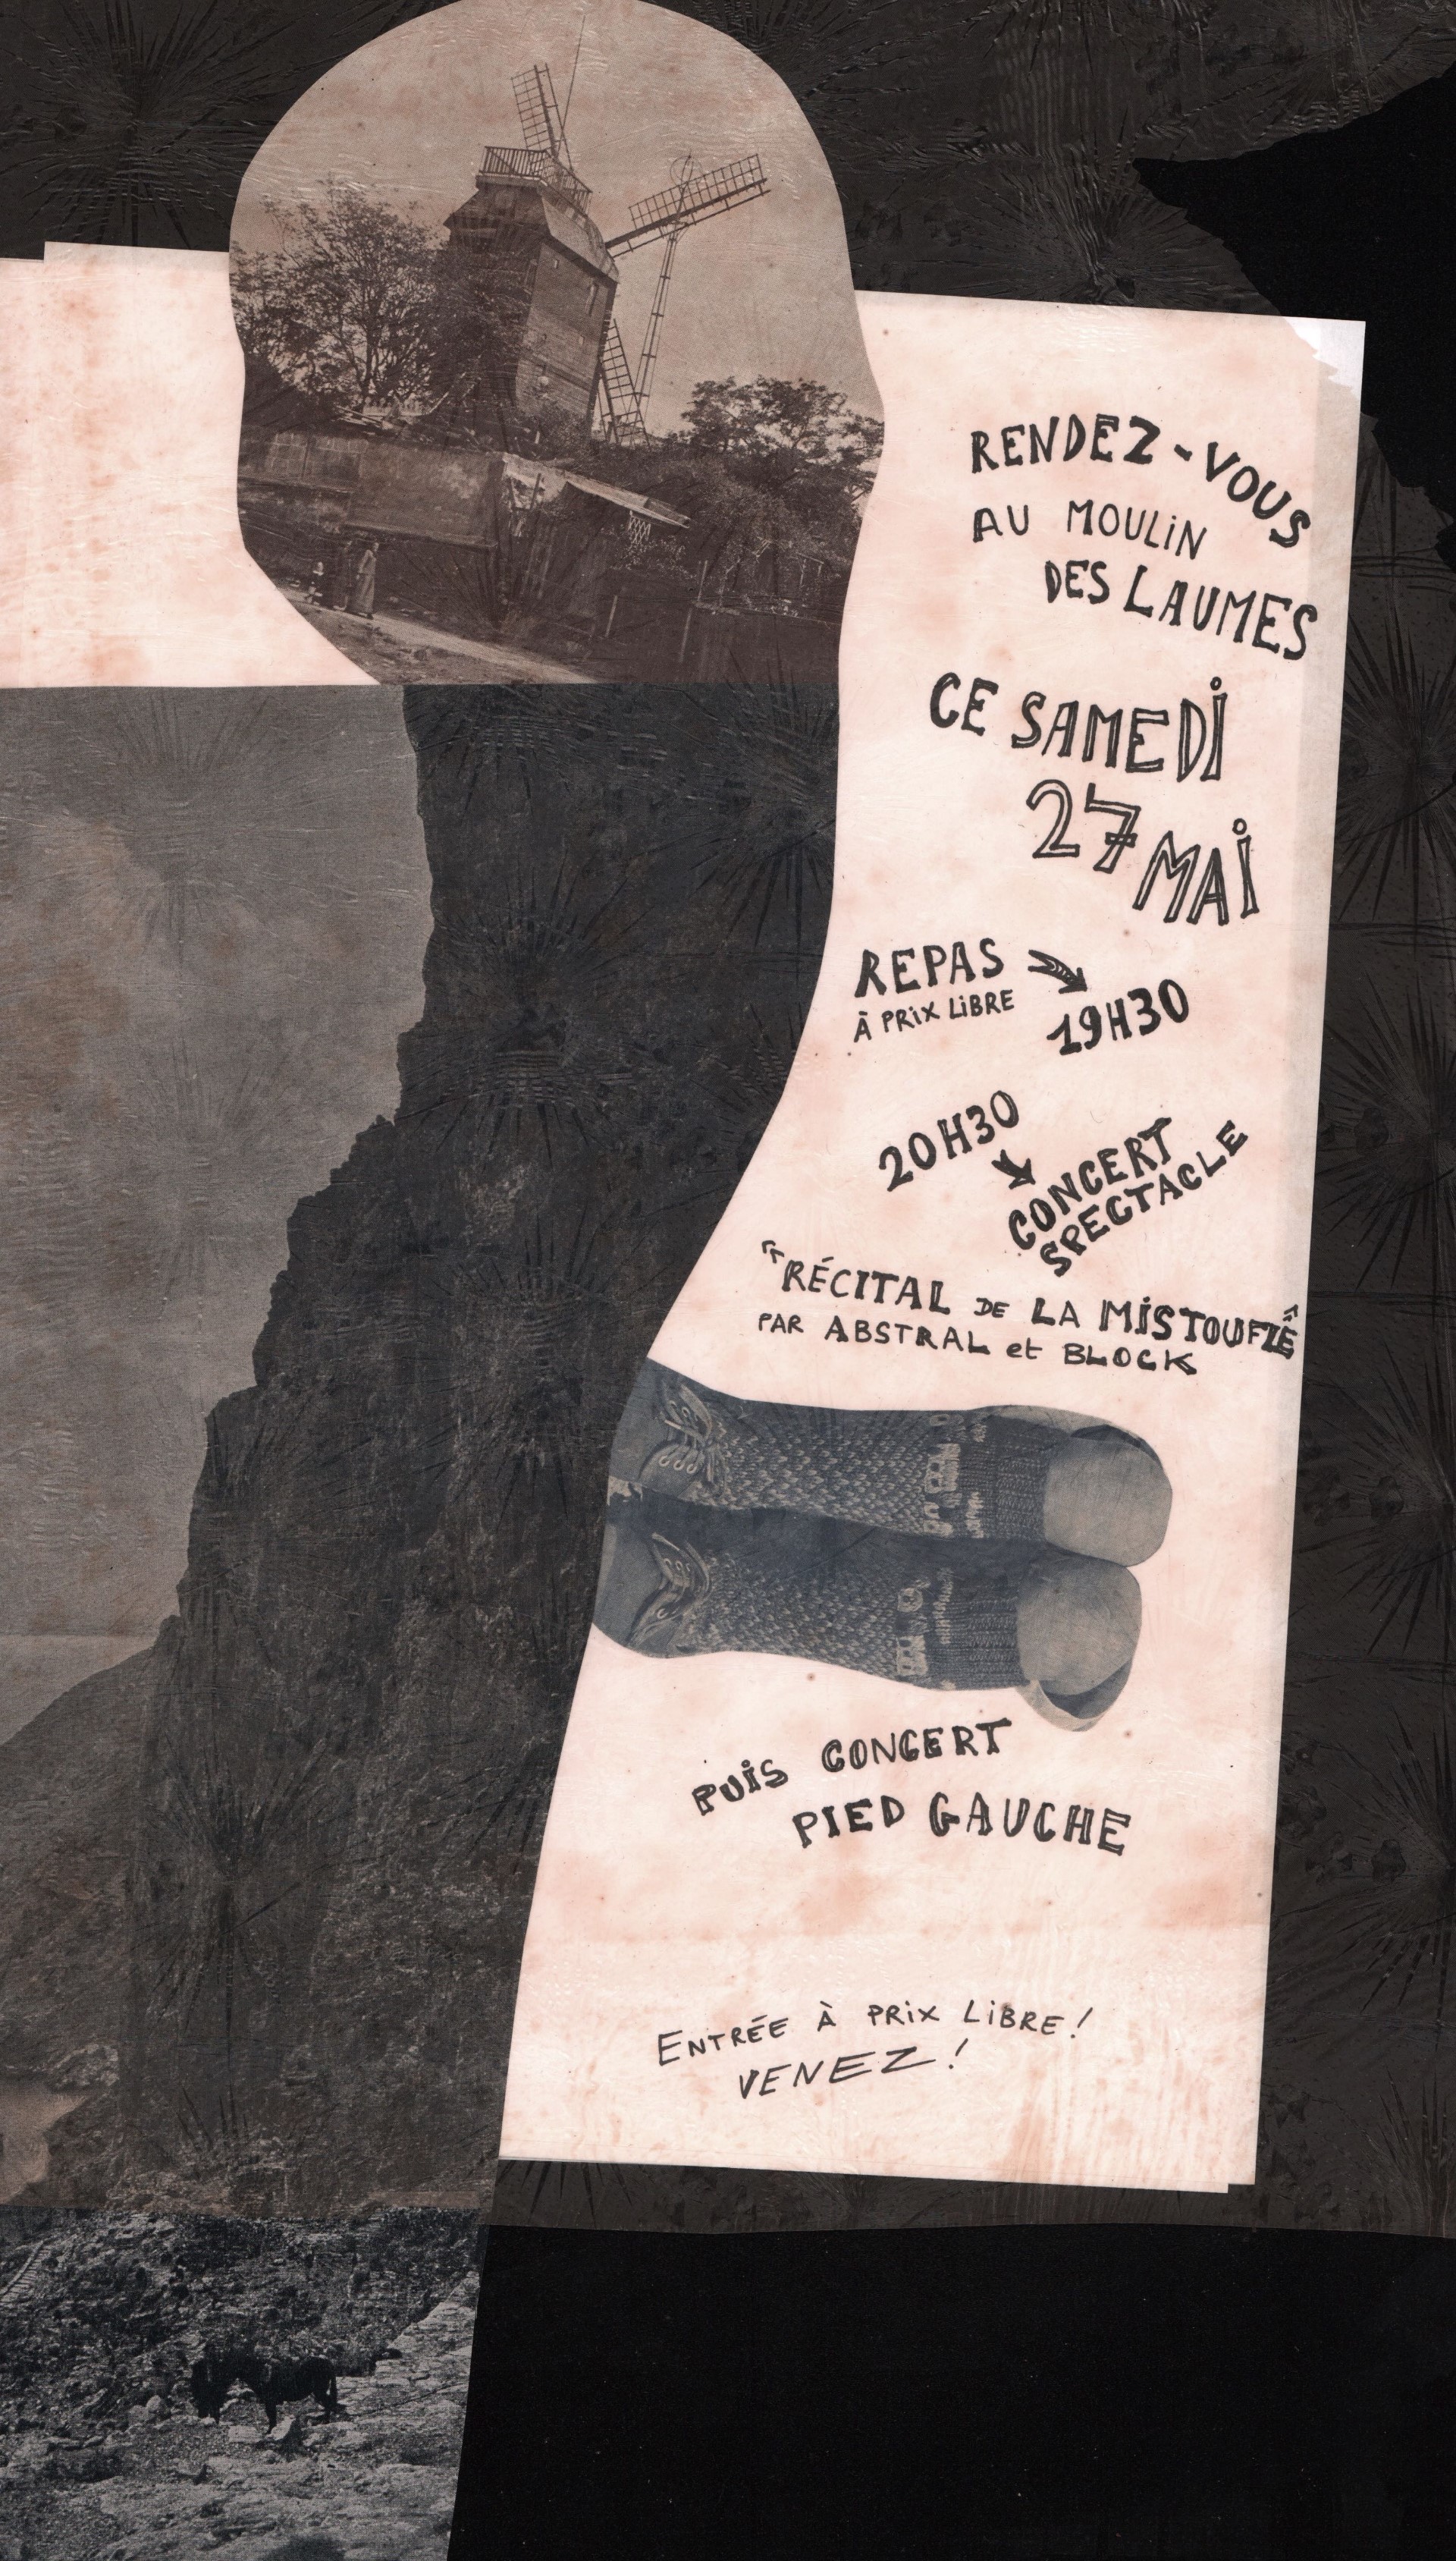 RENDEZ-VOUS
AU MOULIN
DES LAUMES
CE SAMEDI
27 MAI
REPAS → 19H30
À PRIX LIBRE
20H30 → CONCERT
SPECTACLE
"RÉCITAL DE LA MISTOUFLE"
PAR ABSTRAL et BLOCK
PUIS CONCERT
PIED GAUCHE
ENTRÉE À PRIX LIBRE!
VENEZ!